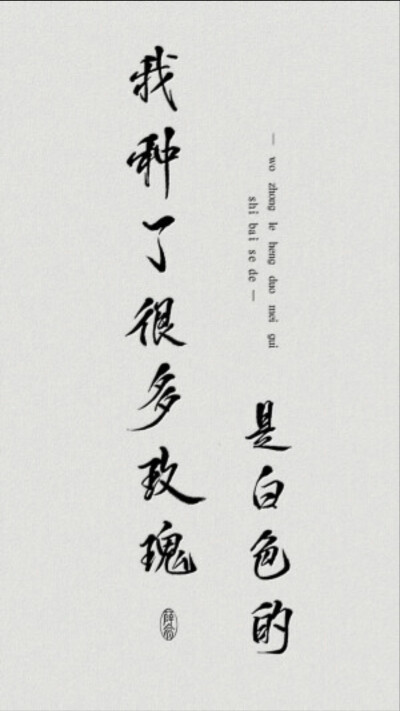 我种了很多玫瑰
是白色的
— wo zhong le heng duo mei gui
shi bai se de —